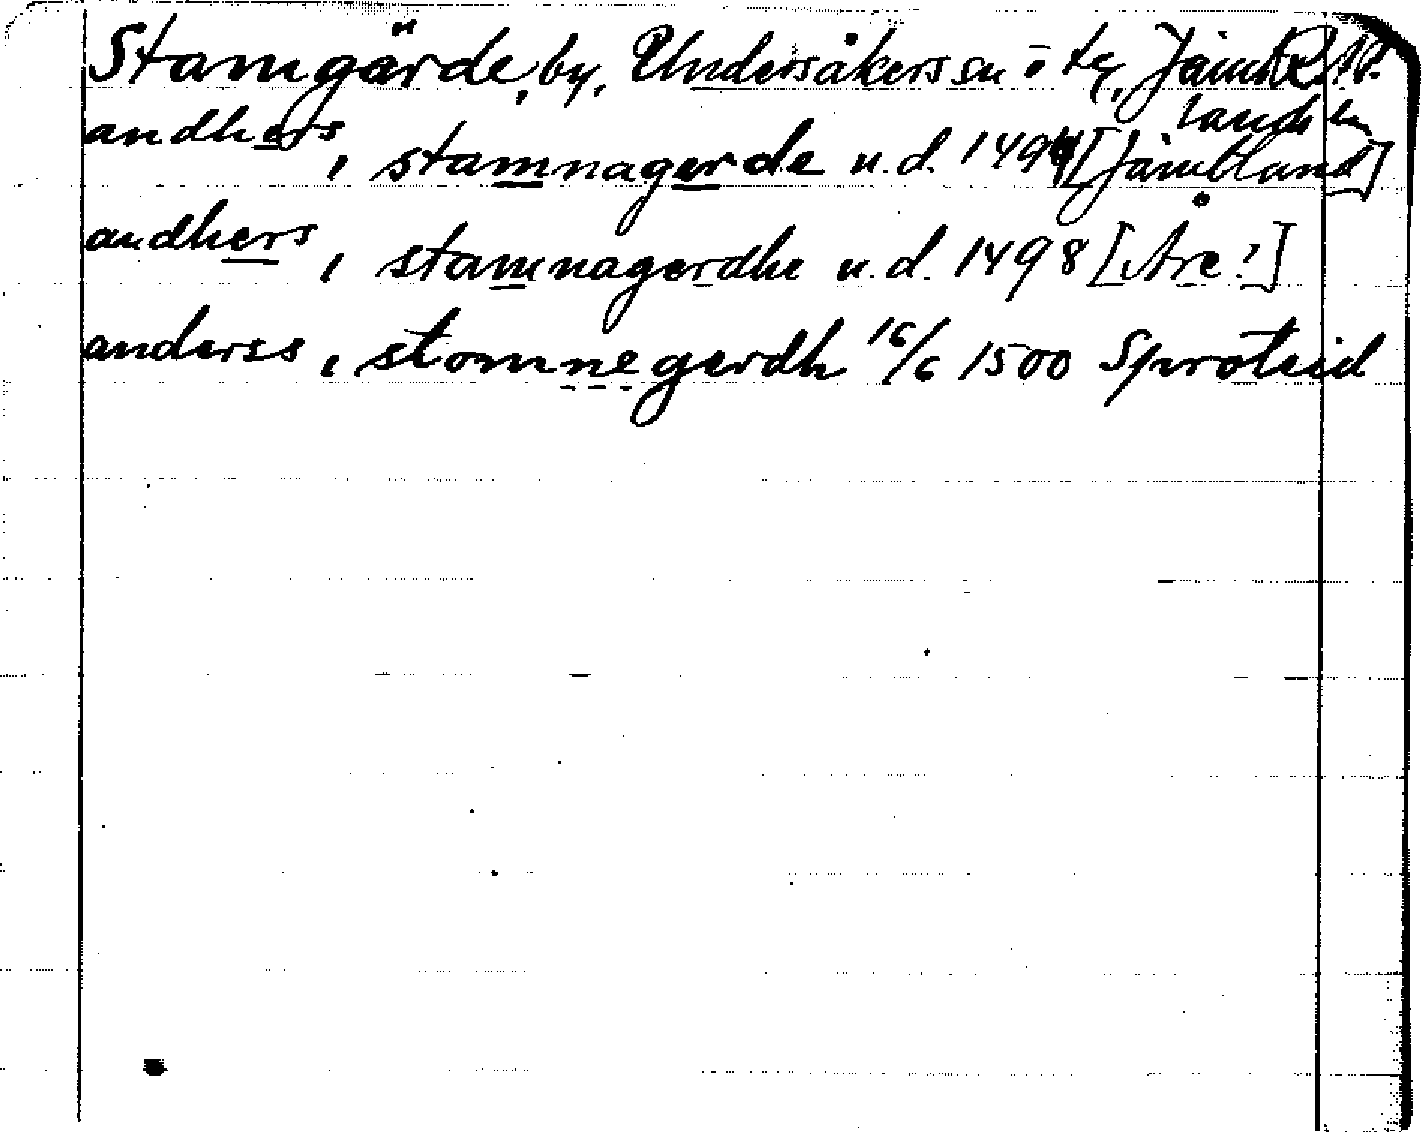 Stamgärde, by, Undersåkers sn o tg, Jämtl
landh in
andhers, stamnagerde u.d. 149 [Jämtland]
andhers, stamnagerdhe u.d. 1498 [Åre?]
anderss, stomnegerdh 16/6 1500 Spröteid